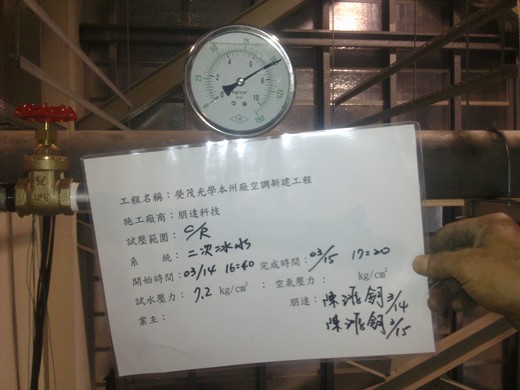 工程名稱：熒茂光學本州廠空調新建工程
施工廠商：朋達科技
試壓範圍：C/R
系　　統：二次冰水
開始時間：03/14 16:40 完成時間：03/15 17:20
試水壓力：7.2 kg/cm² ：空氣壓力： kg/cm²
業主： 朋達： 3/14
3/15